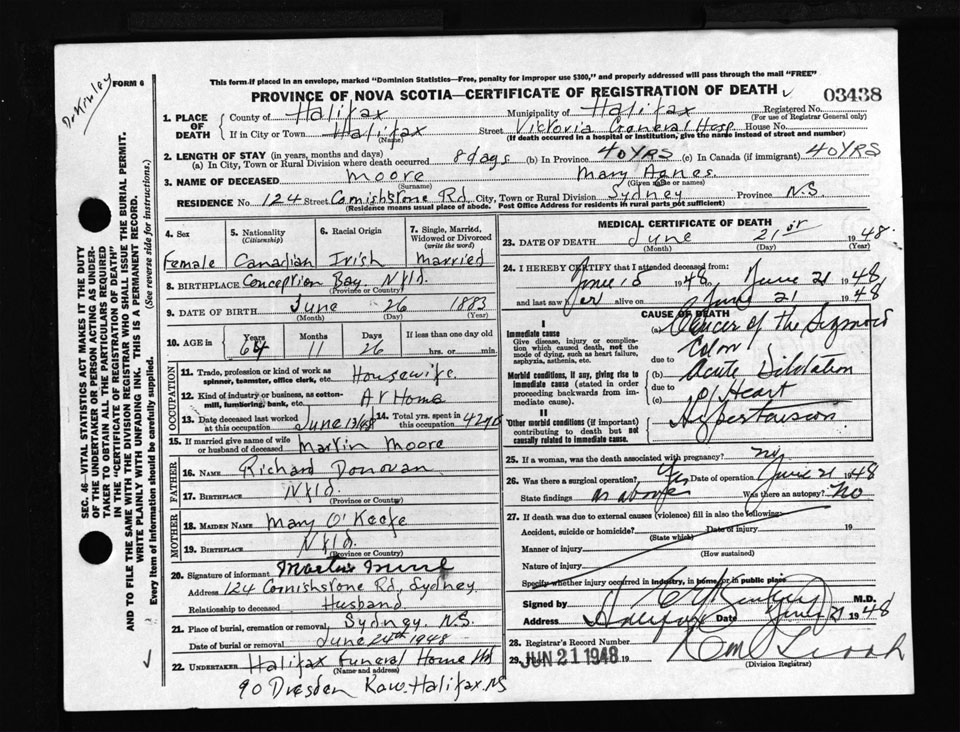 Dr Kinley
FORM 6
This form if placed in an envelope, marked "Dominion Statistics—Free, penalty for improper use $300," and properly addressed will pass through the mail "FREE"
PROVINCE OF NOVA SCOTIA—CERTIFICATE OF REGISTRATION OF DEATH
03438
1. PLACE OF DEATH
County of Halifax Municipality of Halifax Registered No.
(For use of Registrar General only)
If in City or Town Halifax Street Victoria General Hosp. House No.
(Name) (If death occurred in a hospital or institution, give the name instead of street and number)
2. LENGTH OF STAY (in years, months and days)
(a) In City, Town or Rural Division where death occurred 8 days (b) In Province 40 YRS (c) In Canada (if immigrant) 40 YRS
3. NAME OF DECEASED Moore Mary Agnes.
(Surname) (Given name or names)
RESIDENCE No. 124 Street Cornishstone Rd City, Town or Rural Division Sydney Province N.S.
(Residence means usual place of abode. Post Office Address for residents in rural parts not sufficient)
4. Sex 5. Nationality (Citizenship) 6. Racial Origin 7. Single, Married, Widowed or Divorced (write the word)
Female Canadian Irish Married
8. BIRTHPLACE Conception Bay Nfld.
(Province or Country)
9. DATE OF BIRTH June 26 1883
(Month) (Day) (Year)
10. AGE in Years Months Days If less than one day old
64 11 26 hrs. or min.
OCCUPATION
11. Trade, profession or kind of work as spinner, teamster, office clerk, etc. Housewife
12. Kind of industry or business, as cotton-mill, lumbering, bank, etc. At Home
13. Date deceased last worked at this occupation June 13/48 14. Total yrs. spent in this occupation
15. If married give name of wife or husband of deceased Martin Moore
FATHER
16. NAME Richard Donovan
17. BIRTHPLACE Nfld.
(Province or Country)
MOTHER
18. MAIDEN NAME Mary O'Keefe
19. BIRTHPLACE Nfld.
(Province or Country)
20. Signature of informant
Address 124 Cornishstone Rd, Sydney
Relationship to deceased Husband
21. Place of burial, cremation or removal Sydney N.S.
Date of burial or removal June 24th 1948
22. UNDERTAKER Halifax Funeral Home Ltd
(Name and address)
90 Dresden Row, Halifax NS
MEDICAL CERTIFICATE OF DEATH
23. DATE OF DEATH June 21st 1948.
(Month) (Day) (Year)
24. I HEREBY CERTIFY that I attended deceased from:
June 15 1948 to June 21 1948
and last saw her alive on June 21 1948
CAUSE OF DEATH
I
Immediate cause
Give disease, injury or complication which caused death, not the mode of dying, such as heart failure, asphyxia, asthenia, etc.
(a) Cancer of the Sigmoid
Colon
due to
Morbid conditions, if any, giving rise to immediate cause (stated in order proceeding backwards from immediate cause).
(b) Acute Dilatation
due to
(c) of Heart
II
Other morbid conditions (if important) contributing to death but not causally related to immediate cause.
Hypertension
25. If a woman, was the death associated with pregnancy? no
26. Was there a surgical operation? Yes Date of operation June 21 1948
State findings as above Was there an autopsy? No
27. If death was due to external causes (violence) fill in also the following:
Accident, suicide or homicide? Date of injury 19
(State which)
Manner of injury
(How sustained)
Nature of injury
Specify whether injury occurred in industry, in home, or in public place
Signed by M.D.
Halifax Date June 21 1948
28. Registrar's Record Number
29. JUN 21 1948 19
(Division Registrar)
SEC. 46—VITAL STATISTICS ACT MAKES IT THE DUTY
OF THE UNDERTAKER OR PERSON ACTING AS UNDERTAKER TO OBTAIN ALL THE PARTICULARS REQUIRED
IN THE "CERTIFICATE OF REGISTRATION OF DEATH"
AND TO FILE THE SAME WITH THE DIVISION REGISTRAR WHO SHALL ISSUE THE BURIAL PERMIT.
WRITE PLAINLY WITH UNFADING INK. THIS IS A PERMANENT RECORD.
Every item of Information should be carefully supplied. (See reverse side for instructions.)